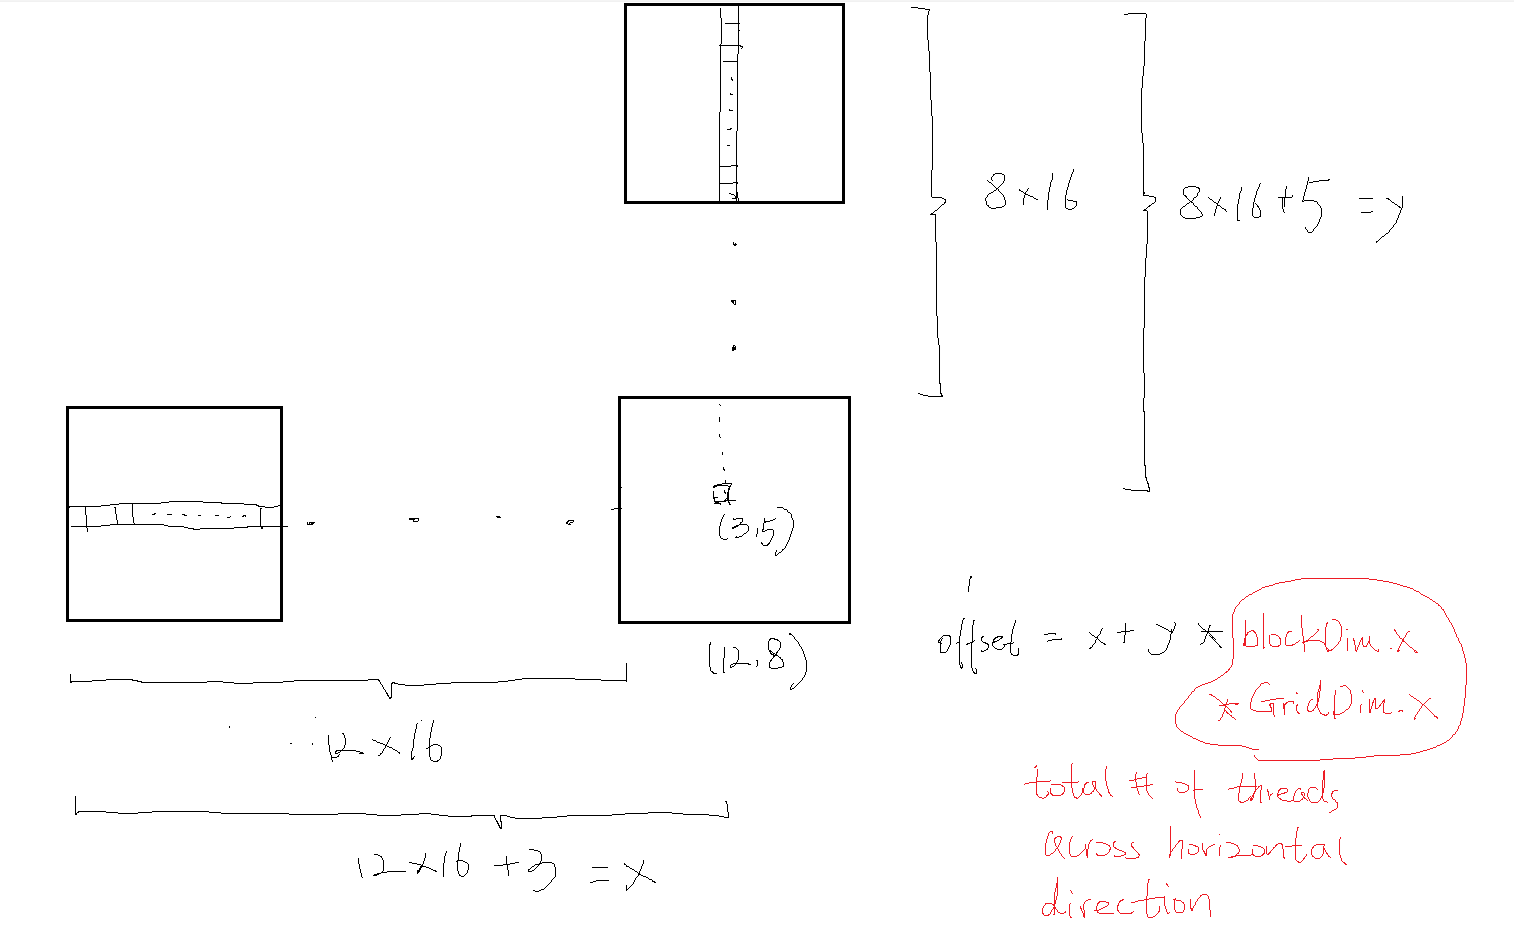 8×16
8×16+5 =y
(3,5)
(12,8)
12×16
12×16+3 =x
offset = x+ y * blockDim.x
* GridDim.x
total # of threads
across horizontal
direction